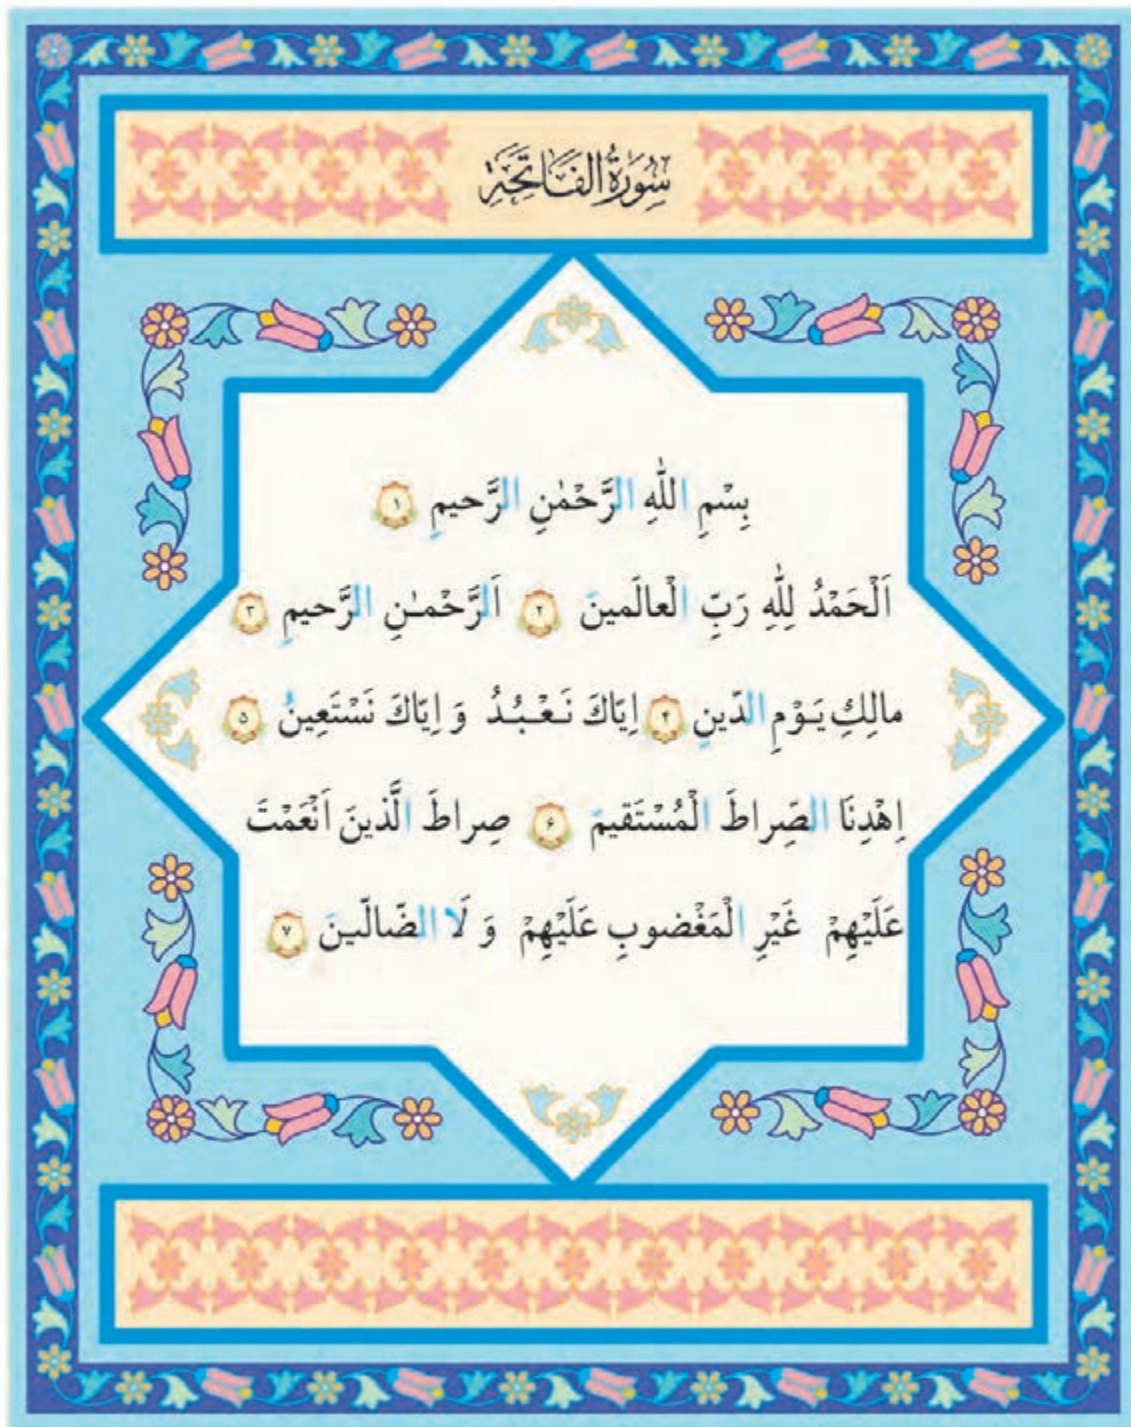 سُورَةُ الفَاتِحَةِ
بِسْمِ اللّٰهِ الرَّحْمٰنِ الرَّحيمِ ۱
اَلْحَمْدُ لِلّٰهِ رَبِّ الْعالَمينَ ۲ اَلرَّحْمـٰنِ الرَّحيمِ ۳
مالِكِ يَـوْمِ الدّينِ ۴ اِيّاكَ نَـعْـبُـدُ وَ اِيّاكَ نَسْتَعينُ ۵
اِهْدِنَا الصِّراطَ الْمُسْتَقيمَ ۶ صِراطَ الَّذينَ اَنْعَمْتَ
عَلَيْهِمْ غَيْرِ الْمَغْضوبِ عَلَيْهِمْ وَ لَا الضّالّينَ ۷